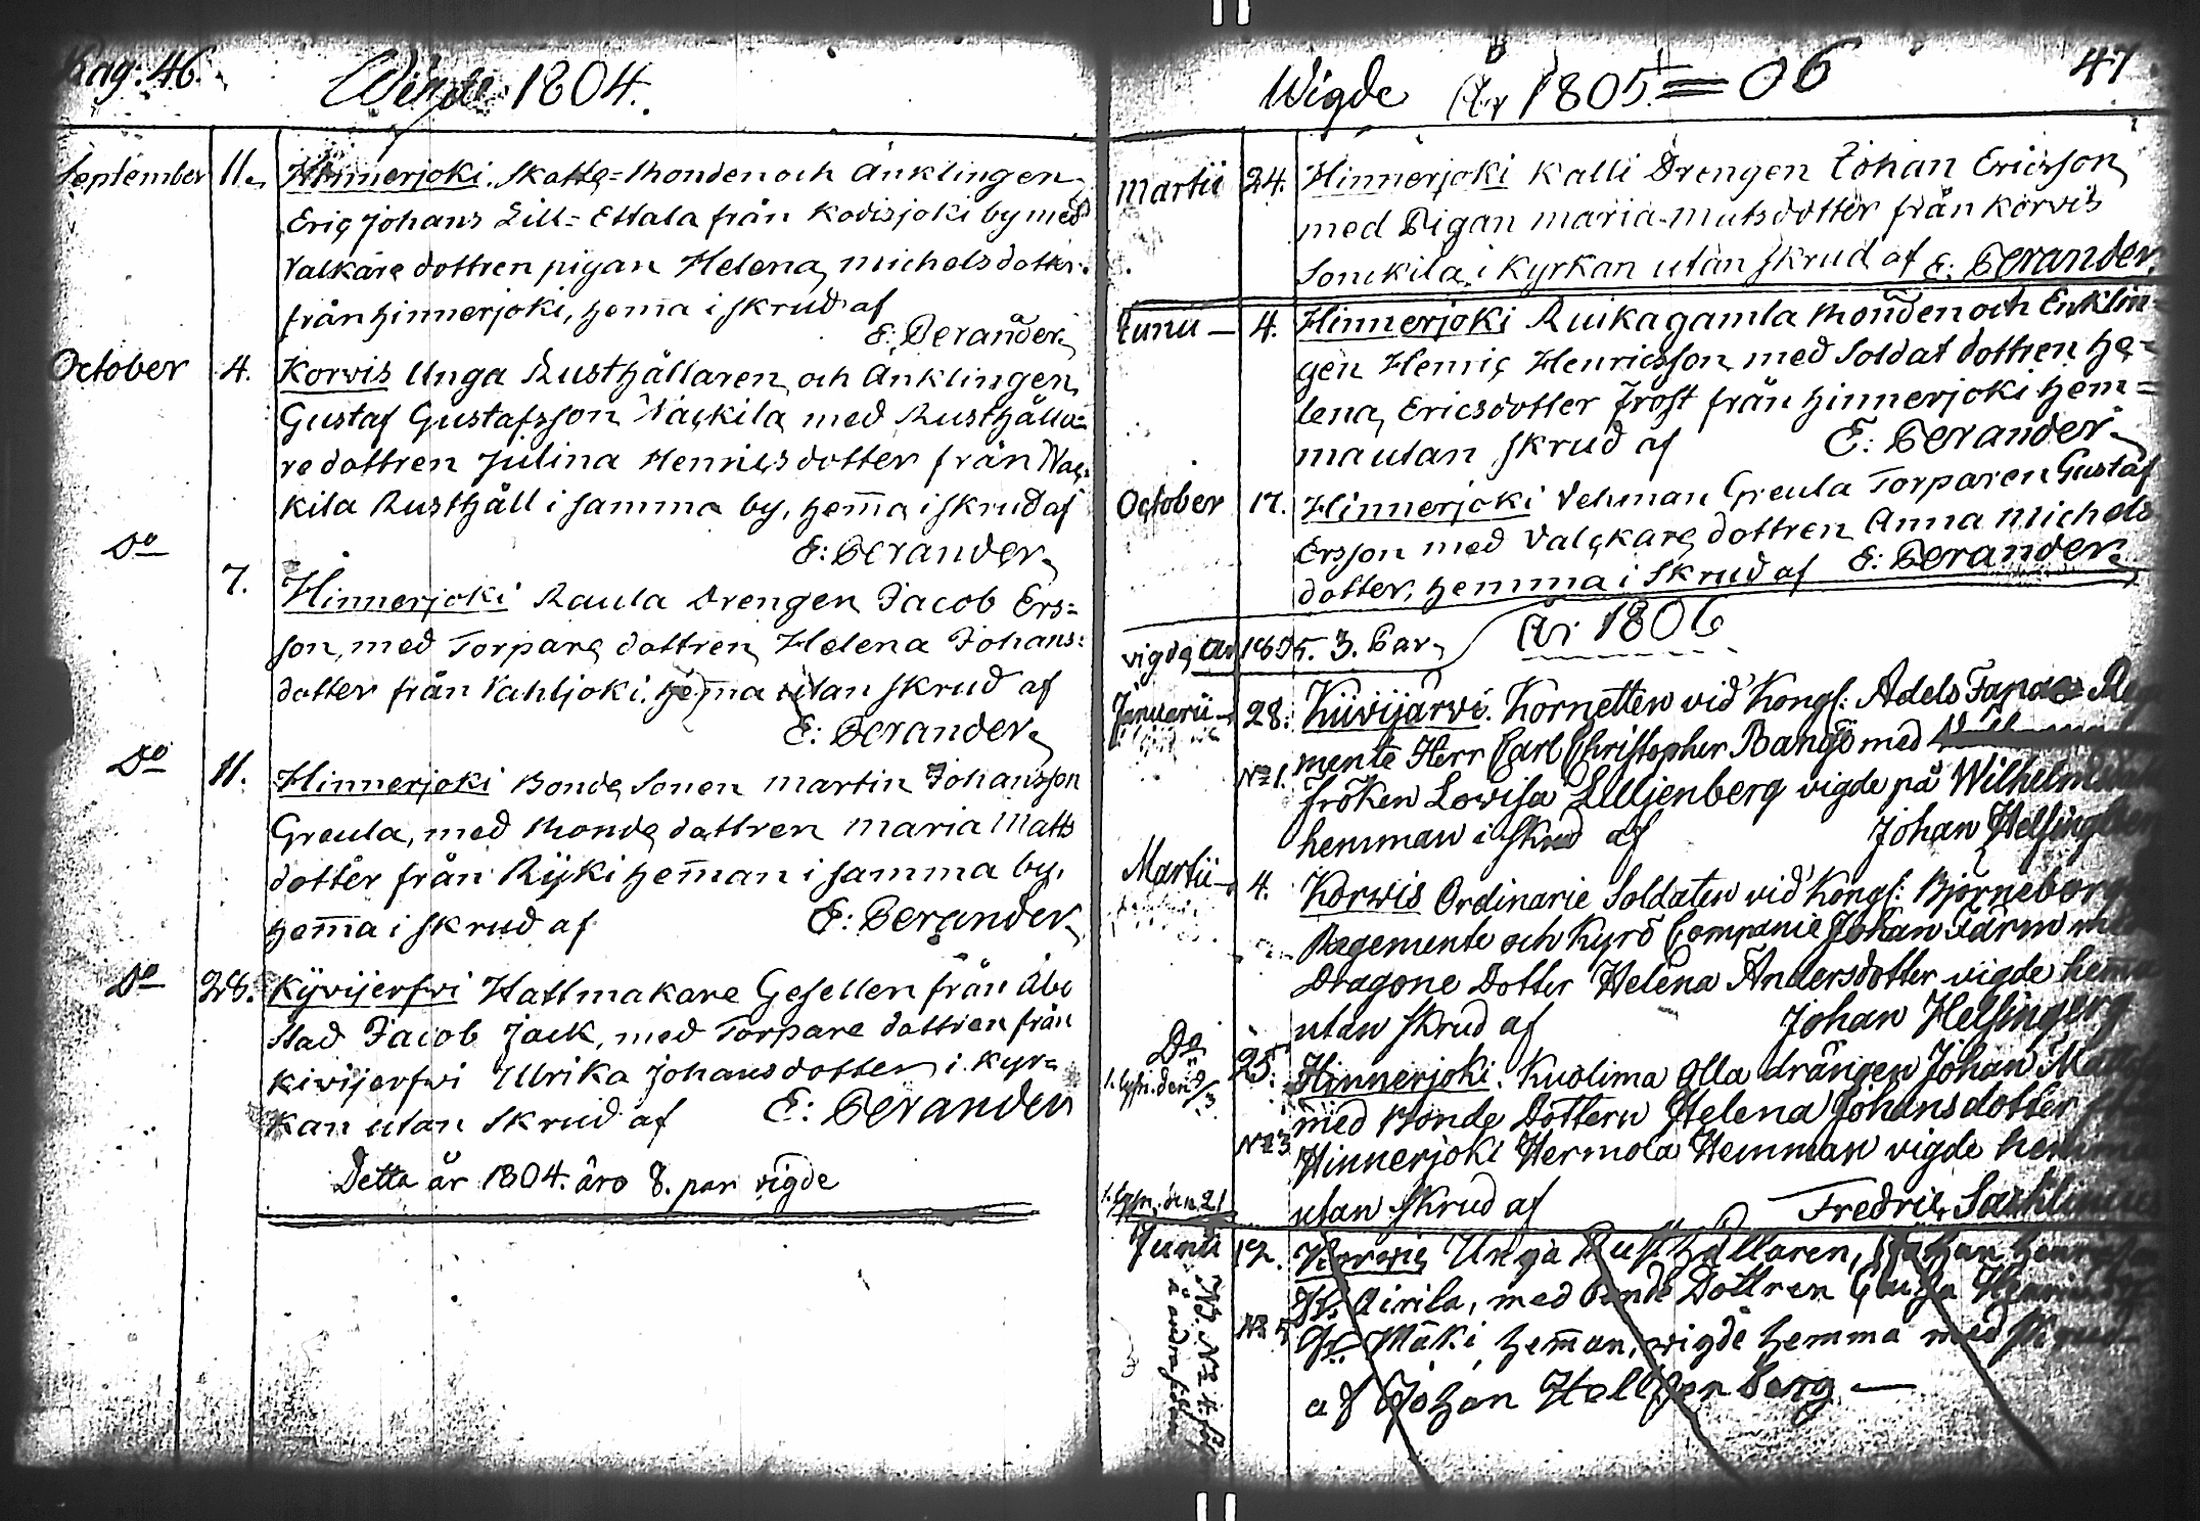 Pag: 46.
Wigde 1804.
September 11. Hinnerjoki. Skatte=Bonden och Änklingen
Eric Johans Lill=Ettala från Kodisjoki by med
Valkare dottren pigan Helena Michelsdotter
från hinnerjoki, hema i skrud af
E: Berander.
October 4. Korvis Unga Rusthållaren och Änklingen
Gustaf Gustafsson Näckila med Rusthålla=
re dottren Julina Henricsdotter från
kila Rusthåll i samma by, hem̄a i skrud af
E: Berander.
Do 7. Hinnerjoki Raula Drengen Jacob Ers=
son, med Torpare dottren Helena Johans=
dotter från Vahljoki. hem̄a utan skrud af
E: Berander.
Do 11. Hinnerjoki Bonde Sonen Martin Johansson
Greula, med Bonde dottren Maria Matts
dotter från Rijki hem̄an i samma by.
hem̄a i skrud af E: Berander.
Do 28. Kyvijerfvi Hattmakare Gesellen från Åbo
stad Jacob Jack, med Torpare dottren från
kivijerfvi Ulrika Johansdotter i kyr=
kan utan skrud af E: Berander
Detta år 1804. äro 8. par vigde
47
Wigde År 1805 = 06
Martii 24. Hinnerjoki Kalli Drengen Johan Ericsson
med Pigan Maria Matsdotter från Korvis
Sonckila i Kyrkan utan skrud af E: Berander.
Junii 4. Hinnerjoki Ruikagamla Bonden och Enklin=
gen Henric Henricsson med Soldat dottren He=
lena Ericsdotter Frost från hinnerjoki hem=
ma utan skrud af E: Berander.
October 17. Hinnerjoki Vehman Greula Torparen Gustaf
Ersson med Valckare dottren Anna Michels
dotter, hemma i skrud af E: Berander.
vigde År 1805. 3. Par.
År 1806
Januarii 28. Kiivijärvi. Kornetten vid Kongl: Adels Fana
mente Herr Carl Christopher Bange med
No 1. fröken Lovisa Lilljenberg vigde på
hemman i skrud af Johan
Martii 4. Korwis Ordinarie Soldaten vid Kongl: Björneborg
Regemente och Kyro Companie Johan Färm
Dragone Dotter Helena Andersdotter vigde hem̄a
utan skrud af Johan Helsingberg
Do 25. Hinnerjoki. Kuolima Olla drängen Johan
med Bonde Dottern Helena Johansdotter
No 3 Hinnerjoki Hermola Hemman vigde hemma
utan skrud af Fredric
Junii 12. Korwis Unga Rusthållaren, Johan
Airila, med Bonde Dottren
No 5 Mäki hem̄an, vigde hemma med skrud
af Johan